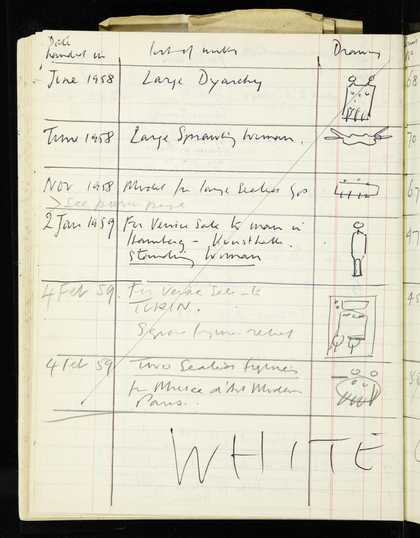 Date handed in
list of works
Drawing
June 1958
Large Dyarchy
68
June 1958
Large Sprawling Woman.
70
Nov 1958
Model for large Seated
67
> See
page
2 Jan 1959
For Venice Sale to man in
Hamburg - Kunsthalle.
Standing Woman
47
4 Feb 59.
For Venice Sale to
TURIN.
Square figure relief
4 Feb 59
Two Seated Figures
for Musée d'Art Modern
Paris.
WHITE